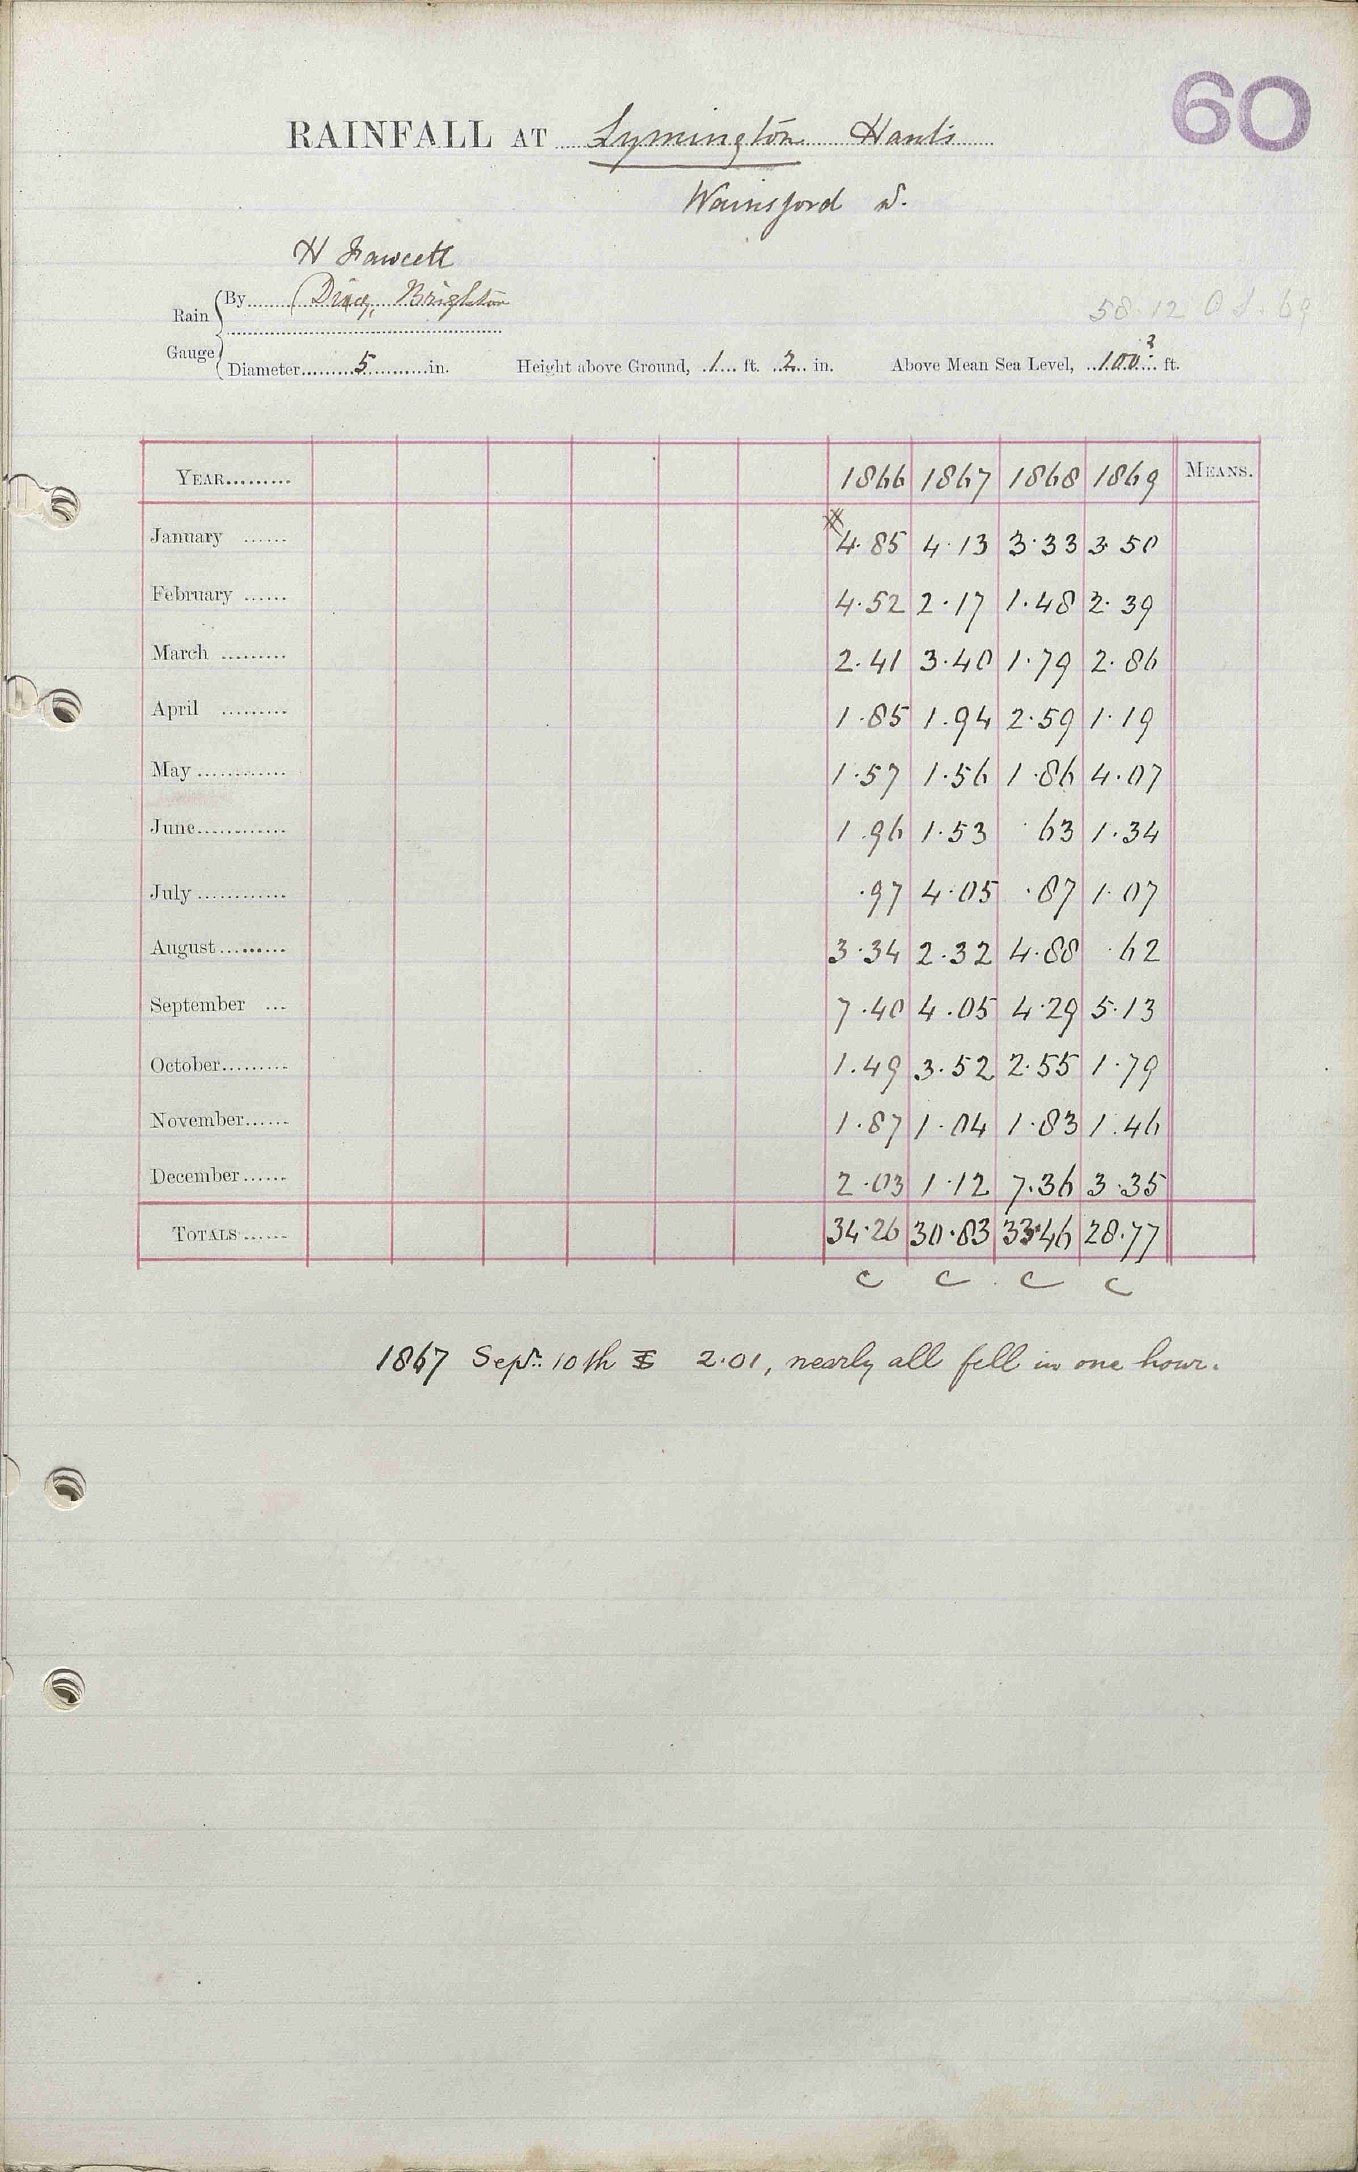 60
RAINFALL AT Lymington Hants
Wainsford
H Fawcett
Rain Gauge
By Brighton
58.12
Diameter 5 in. Height above Ground, 1 ft. 2 in. Above Mean Sea Level, 100 ? ft.
YEAR 1866 1867 1868 1869 MEANS.
January 4.85 4.13 3.33 3.50
February 4.52 2.17 1.48 2.39
March 2.41 3.40 1.79 2.86
April 1.85 1.94 2.59 1.19
May 1.57 1.56 1.86 4.07
June 1.96 1.53 .63 1.34
July .97 4.05 .87 1.07
August 3.34 2.32 4.88 .62
September 7.40 4.05 4.29 5.13
October 1.49 3.52 2.55 1.79
November 1.87 1.04 1.83 1.46
December 2.03 1.12 7.36 3.35
TOTALS 34.26 30.83 33.46 28.77
c c c c
1867 Sepr. 10th 2.01, nearly all fell in one hour.